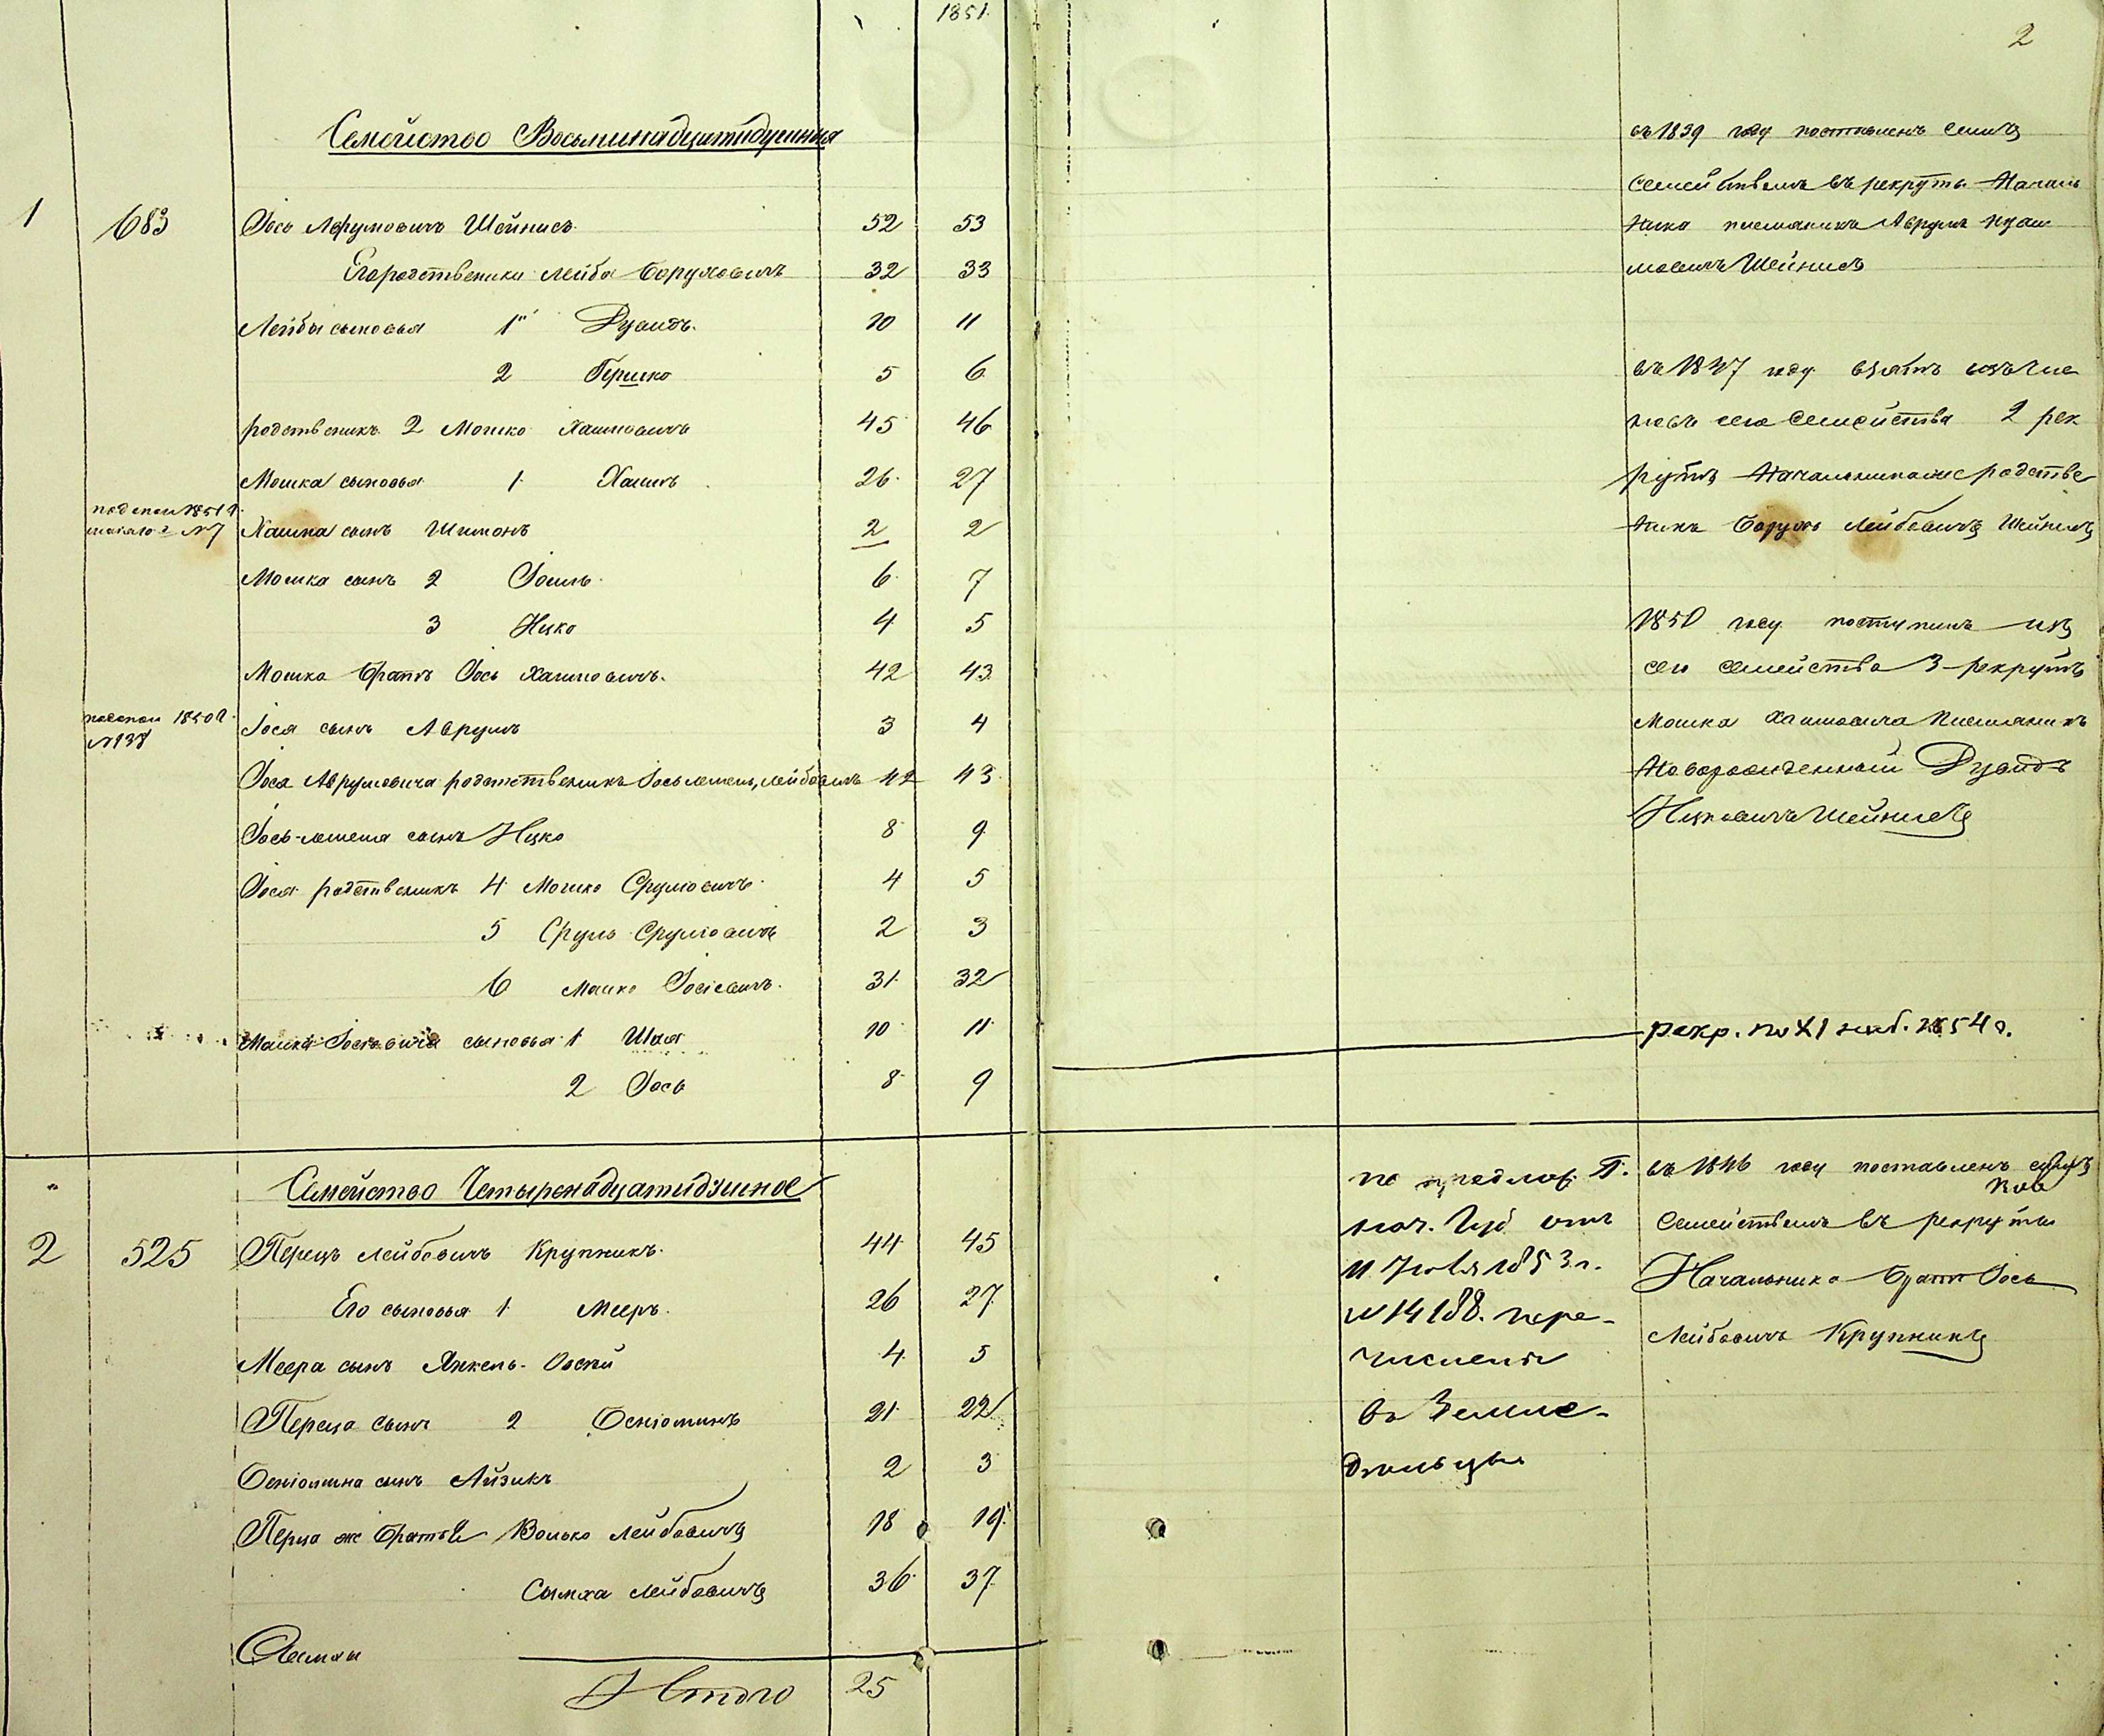 1851.
2
Семейство Восьминадцатидушная
1 683 Іось Аврумовичъ Шейнисъ 52 53
Его родственики Лейба Борухoвичъ 32 33
Лейбы сыновья 1й Дувидъ. 10 11
2 Гершко 5 6
родственикъ 2 Мошко Хаимовичъ 45 46
Мошка сыновья 1 Хаимъ 26 27
1851
№ 7 Хаима сынъ Шимонъ 2 2
Мошка сынъ 2 Іоиль 6 7
3 Ицко 4 5
Мошка братъ Іось Хаимовичъ. 42 43
1850 г.
№ 138 Іося сынъ Аврумъ 3 4
Іося Аврумовича родственикъ Іось Лейбовичъ 42 43
Іось сынъ Ицко 8 9
Іося родственикъ 4 Мошко Срулiовичъ 4 5
5 Сруль Срулiовичъ 2 3
6 Мошко Іосiовичъ. 31 32
Мошка Іосiовича сыновья 1 Шая 10 11
2 Іось 8 9
въ 1839 году поставленъ симъ
семействомъ въ рекруты Началь
ника племяникъ Аврумъ
Шейнисъ
въ 1847 году взятъ изъ чис
сего семейства 2 рек
рутъ Начальника родстве
никъ Борухъ Лейбовичъ Шейнисъ
1850 году поступилъ изъ
сего семейства 3 рекрутъ
Мошка Хаимовича племяникъ
Новорожденный Дувидъ
Ицковичъ Шейнисъ
рекр. по XI наб. 1854 г.
Семейство Четыренадцатидушное
2 525 Перецъ Лейбовичъ Крупникъ. 44 45
Его сыновья 1 Мееръ. 26 27
Меера сынъ Янкель- 4 5
Переца сынъ 2 21 22
сынъ Айзикъ 2 3
Перца же братья Волько Лейбовичъ 18 19
Сымха Лейбовичъ 36 37
Итого 25
по предлож. Г.
нач. Губ отъ
11 1853 г.
№ 14188. пере-
численъ
въ Земле-
дельцы
въ 1846 году поставленъ симъ
семействомъ въ рекруты
Начальника братъ Іось
Лейбовичъ Крупникъ